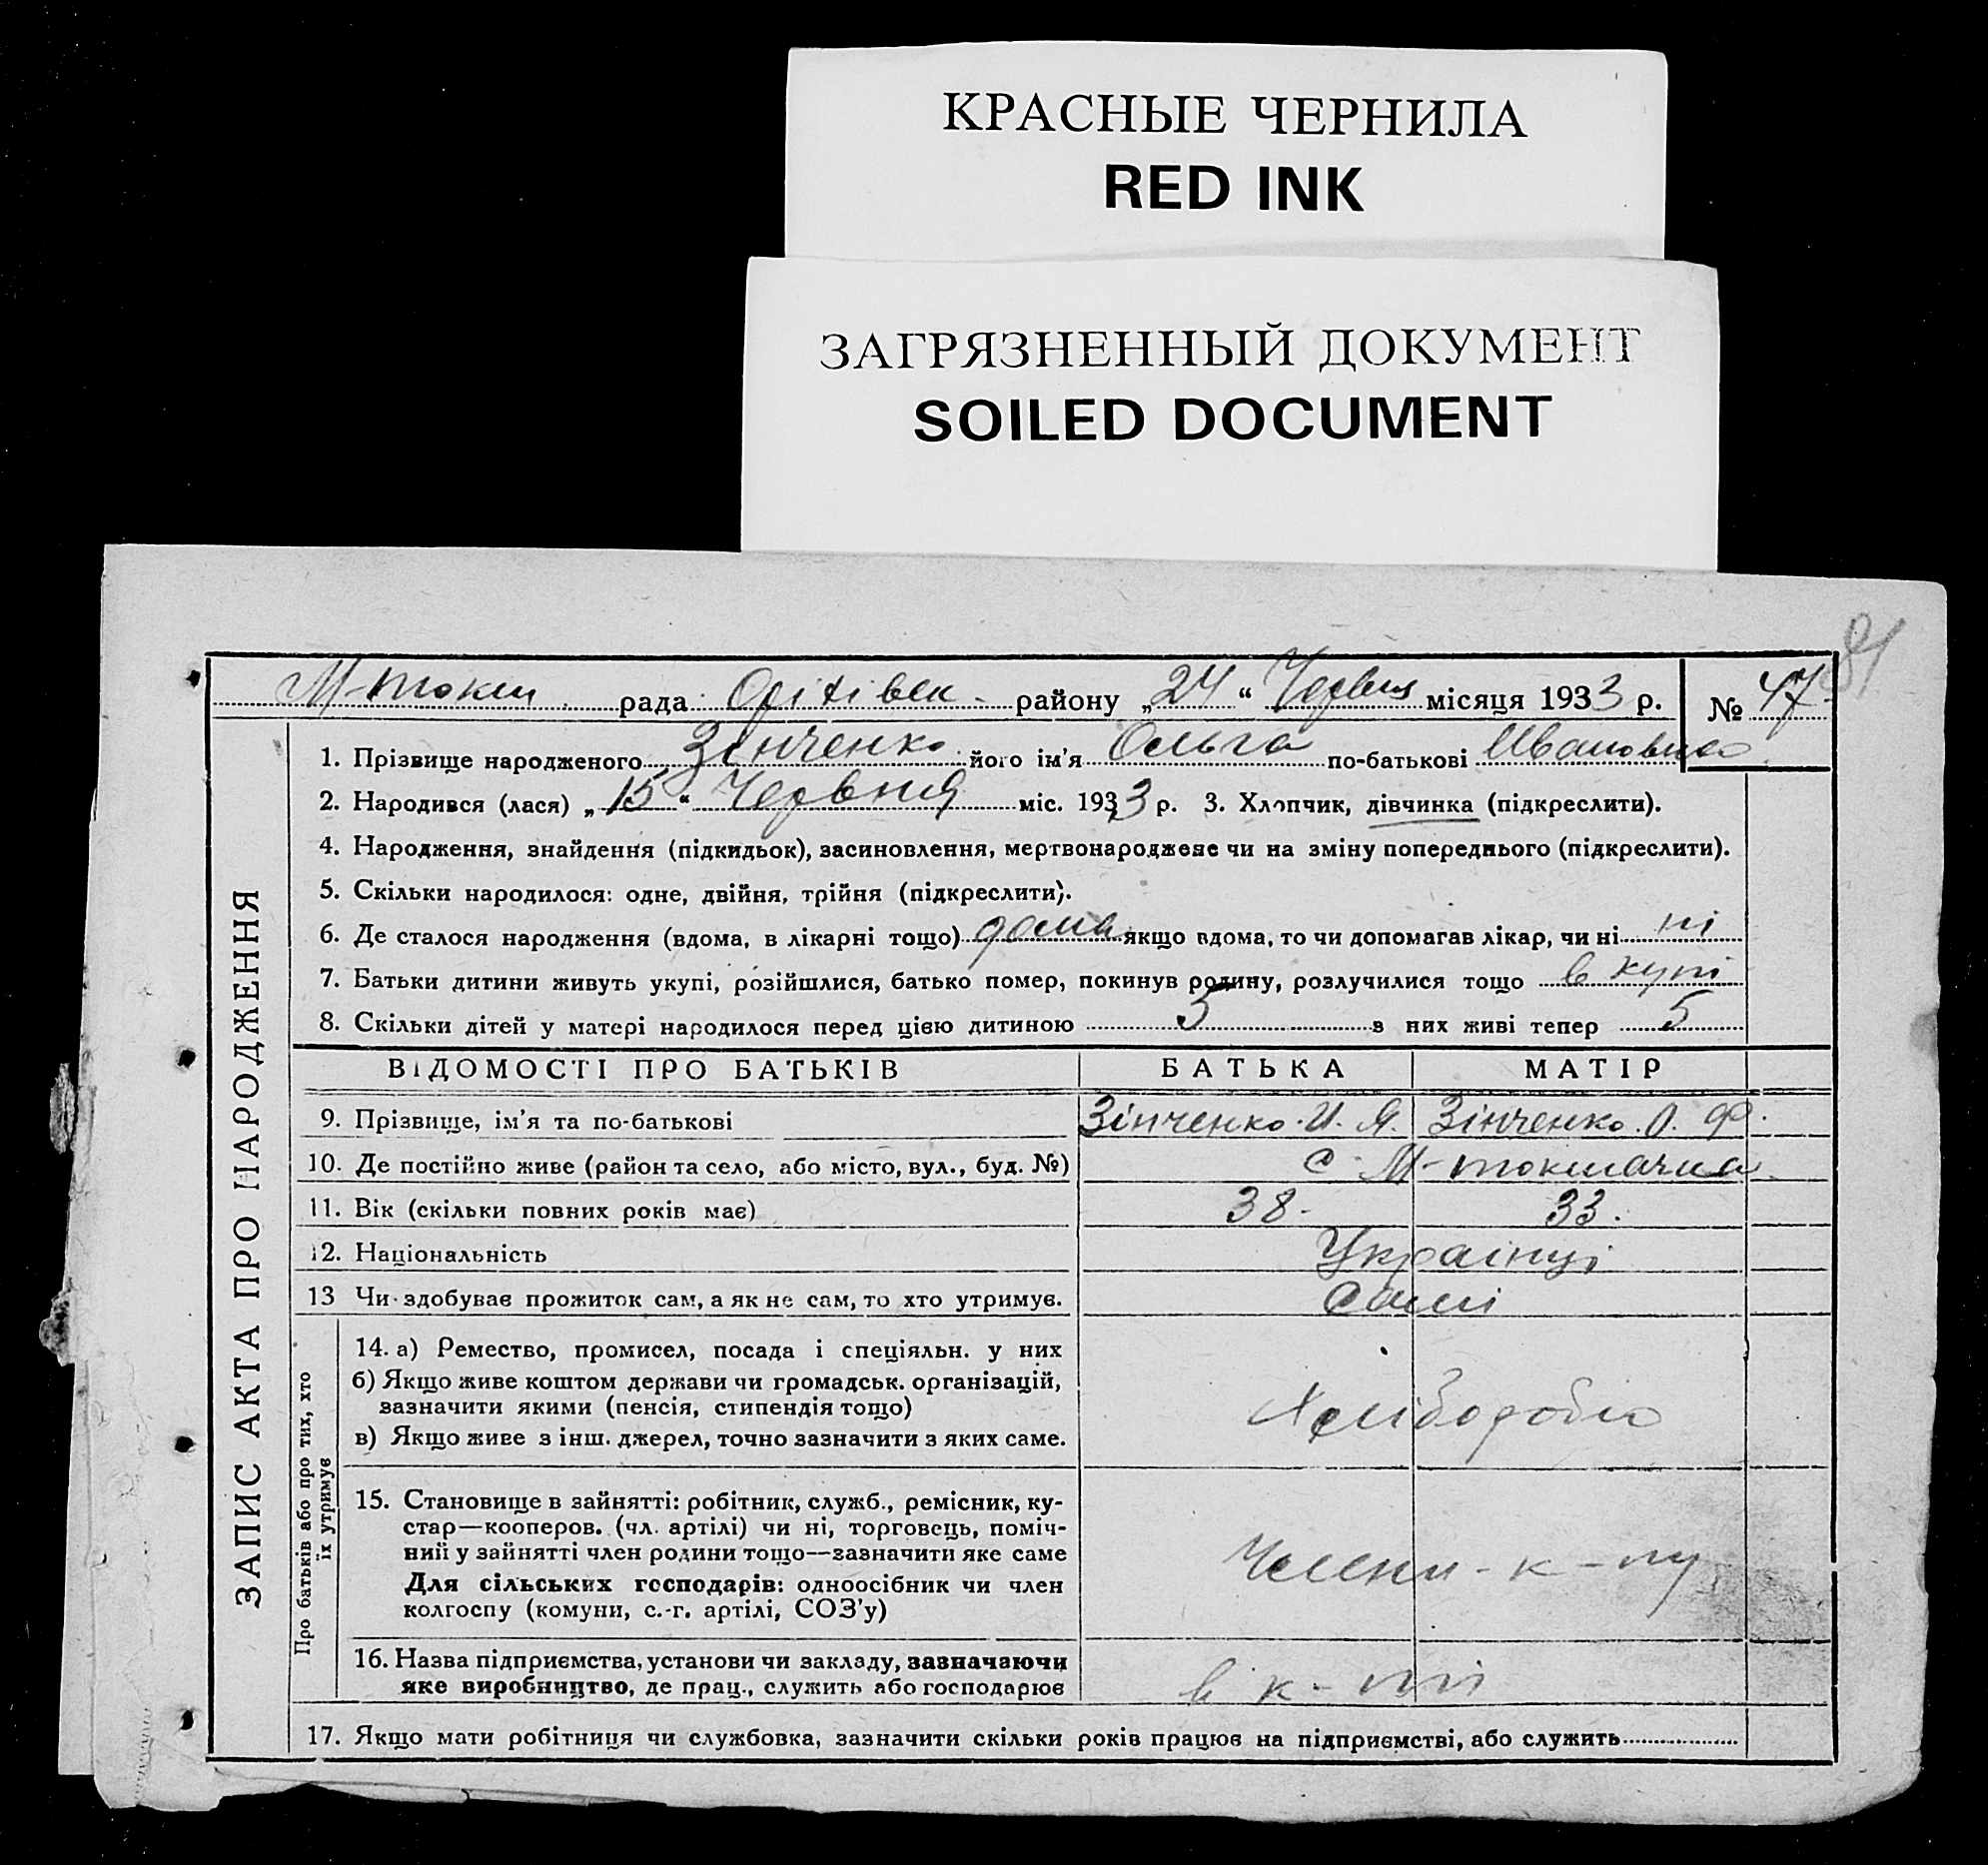 КРАСНЫЕ ЧЕРНИЛА
RED INK
ЗАГРЯЗНЕННЫЙ ДОКУМЕНТ
SOILED DOCUMENT
81
М-токм рада Оріхівськ району „24“ Червня місяця 1933 р. № 47
ЗАПИС АКТА ПРО НАРОДЖЕННЯ
1. Прізвище народженого Зінченко його ім'я Ольга по-батькові Ивановна
2. Народився (лася) „15“ Червня міс. 1933 р. 3. Хлопчик, дівчинка (підкреслити).
4. Народження, знайдення (підкидьок), засиновлення, мертвонароджене чи на зміну попереднього (підкреслити).
5. Скільки народилося: одне, двійня, трійня (підкреслити).
6. Де сталося народження (вдома, в лікарні тощо) дома якщо вдома, то чи допомагав лікар, чи ні ні
7. Батьки дитини живуть укупі, розійшлися, батько помер, покинув родину, розлучилися тощо в купі
8. Скільки дітей у матері народилося перед цією дитиною 5 з них живі тепер 5
ВІДОМОСТІ ПРО БАТЬКІВ БАТЬКА МАТІР
9. Прізвище, ім'я та по-батькові Зінченко И. Я. Зінченко О. Ф.
10. Де постійно живе (район та село, або місто, вул., буд. №) с М-токмачка
11. Вік (скільки повних років має) 38 33.
12. Національність Українці
13 Чи здобуває прожиток сам, а як не сам, то хто утримує. Самі
Про батьків або про тих, хто
їх утримує
14. а) Ремество, промисел, посада і спеціяльн. у них
б) Якщо живе коштом держави чи громадськ. організацій,
зазначити якими (пенсія, стипендія тощо)
в) Якщо живе з інш. джерел, точно зазначити з яких саме.
15. Становище в зайнятті: робітник, служб., ремісник, ку-
стар—кооперов. (чл. артілі) чи ні, торговець, поміч-
ний у зайнятті член родини тощо—зазначити яке саме
Для сільських господарів: одноосібник чи член
колгоспу (комуни, с.-г. артілі, СОЗ'у)
Члени - к - пу
16. Назва підприємства, установи чи закладу, зазначаючи
яке виробництво, де прац., служить або господарює
в к - пі
17. Якщо мати робітниця чи службовка, зазначити скільки років працює на підприємстві, або служить